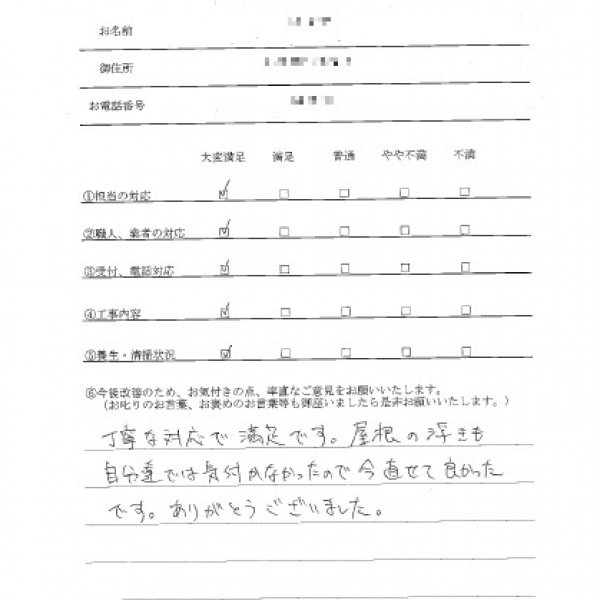 お名前
御住所
お電話番号
大変満足 満足 普通 やや不満 不満
①担当の対応
②職人、業者の対応
③受付、電話対応
④工事内容
⑤養生・清掃状況
⑥今後改善のため、お気付きの点、率直なご意見をお願いいたします。
(お叱りのお言葉、お褒めのお言葉等も御座いましたら是非お願いいたします。)
丁寧な対応で満足です。屋根の浮きも
自分達では気付かなかったので今直せて良かった
です。ありがとうございました。